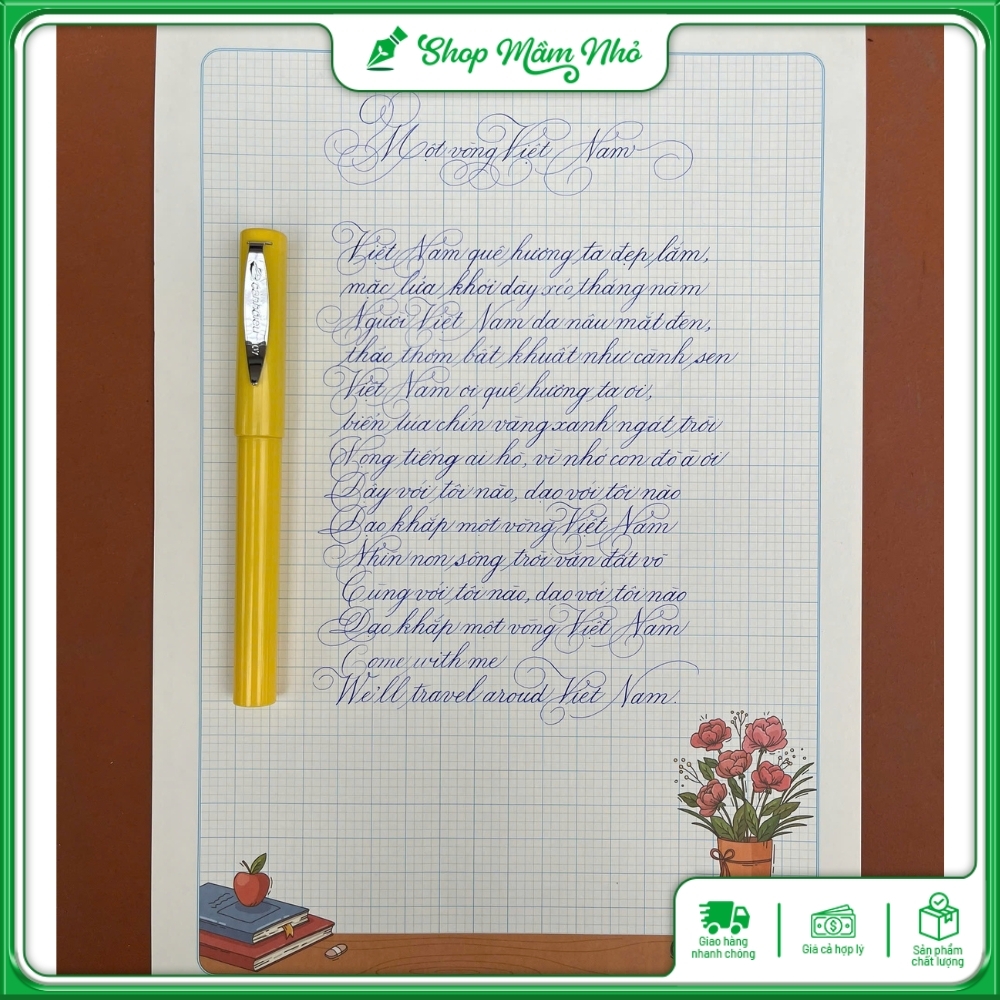 Shop Mầm Nhỏ
Một vòng Việt Nam
Việt Nam quê hương ta đẹp lắm,
mặc lửa khói dãy xéo tháng năm
Người Việt Nam da nâu mắt đen,
thảo thơm bất khuất như cành sen
Việt Nam ơi quê hương ta ơi,
biển lúa chín vàng xanh ngát trời
Vọng tiếng ai hò, ví nhớ con đò ả ơi
Dậy với tôi nào, dạo với tôi nào
Dạo khắp một vòng Việt Nam
Nhìn non sông trời vẫn đất võ
Cùng với tôi nào, dạo với tôi nào
Dạo khắp một vòng Việt Nam
Come with me
We'll travel aroud Việt Nam.
Giao hàng
nhanh chóng
Giá cả hợp lý
Sản phẩm
chất lượng